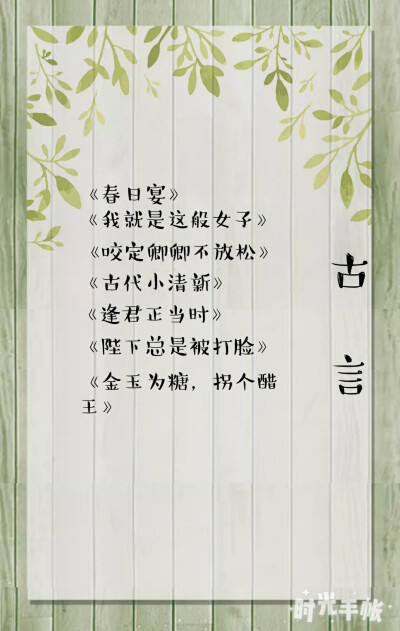 《春日宴》
《我就是这般女子》
《咬定卿卿不放松》
《古代小清新》
《逢君正当时》
《陛下总是被打脸》
《金玉为糖，拐个醋
王》
古言
时光手帐